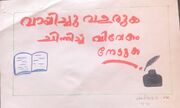 വായിച്ചു വളരുക
ചിന്തിച്ച് വിവേകം
നേടുക